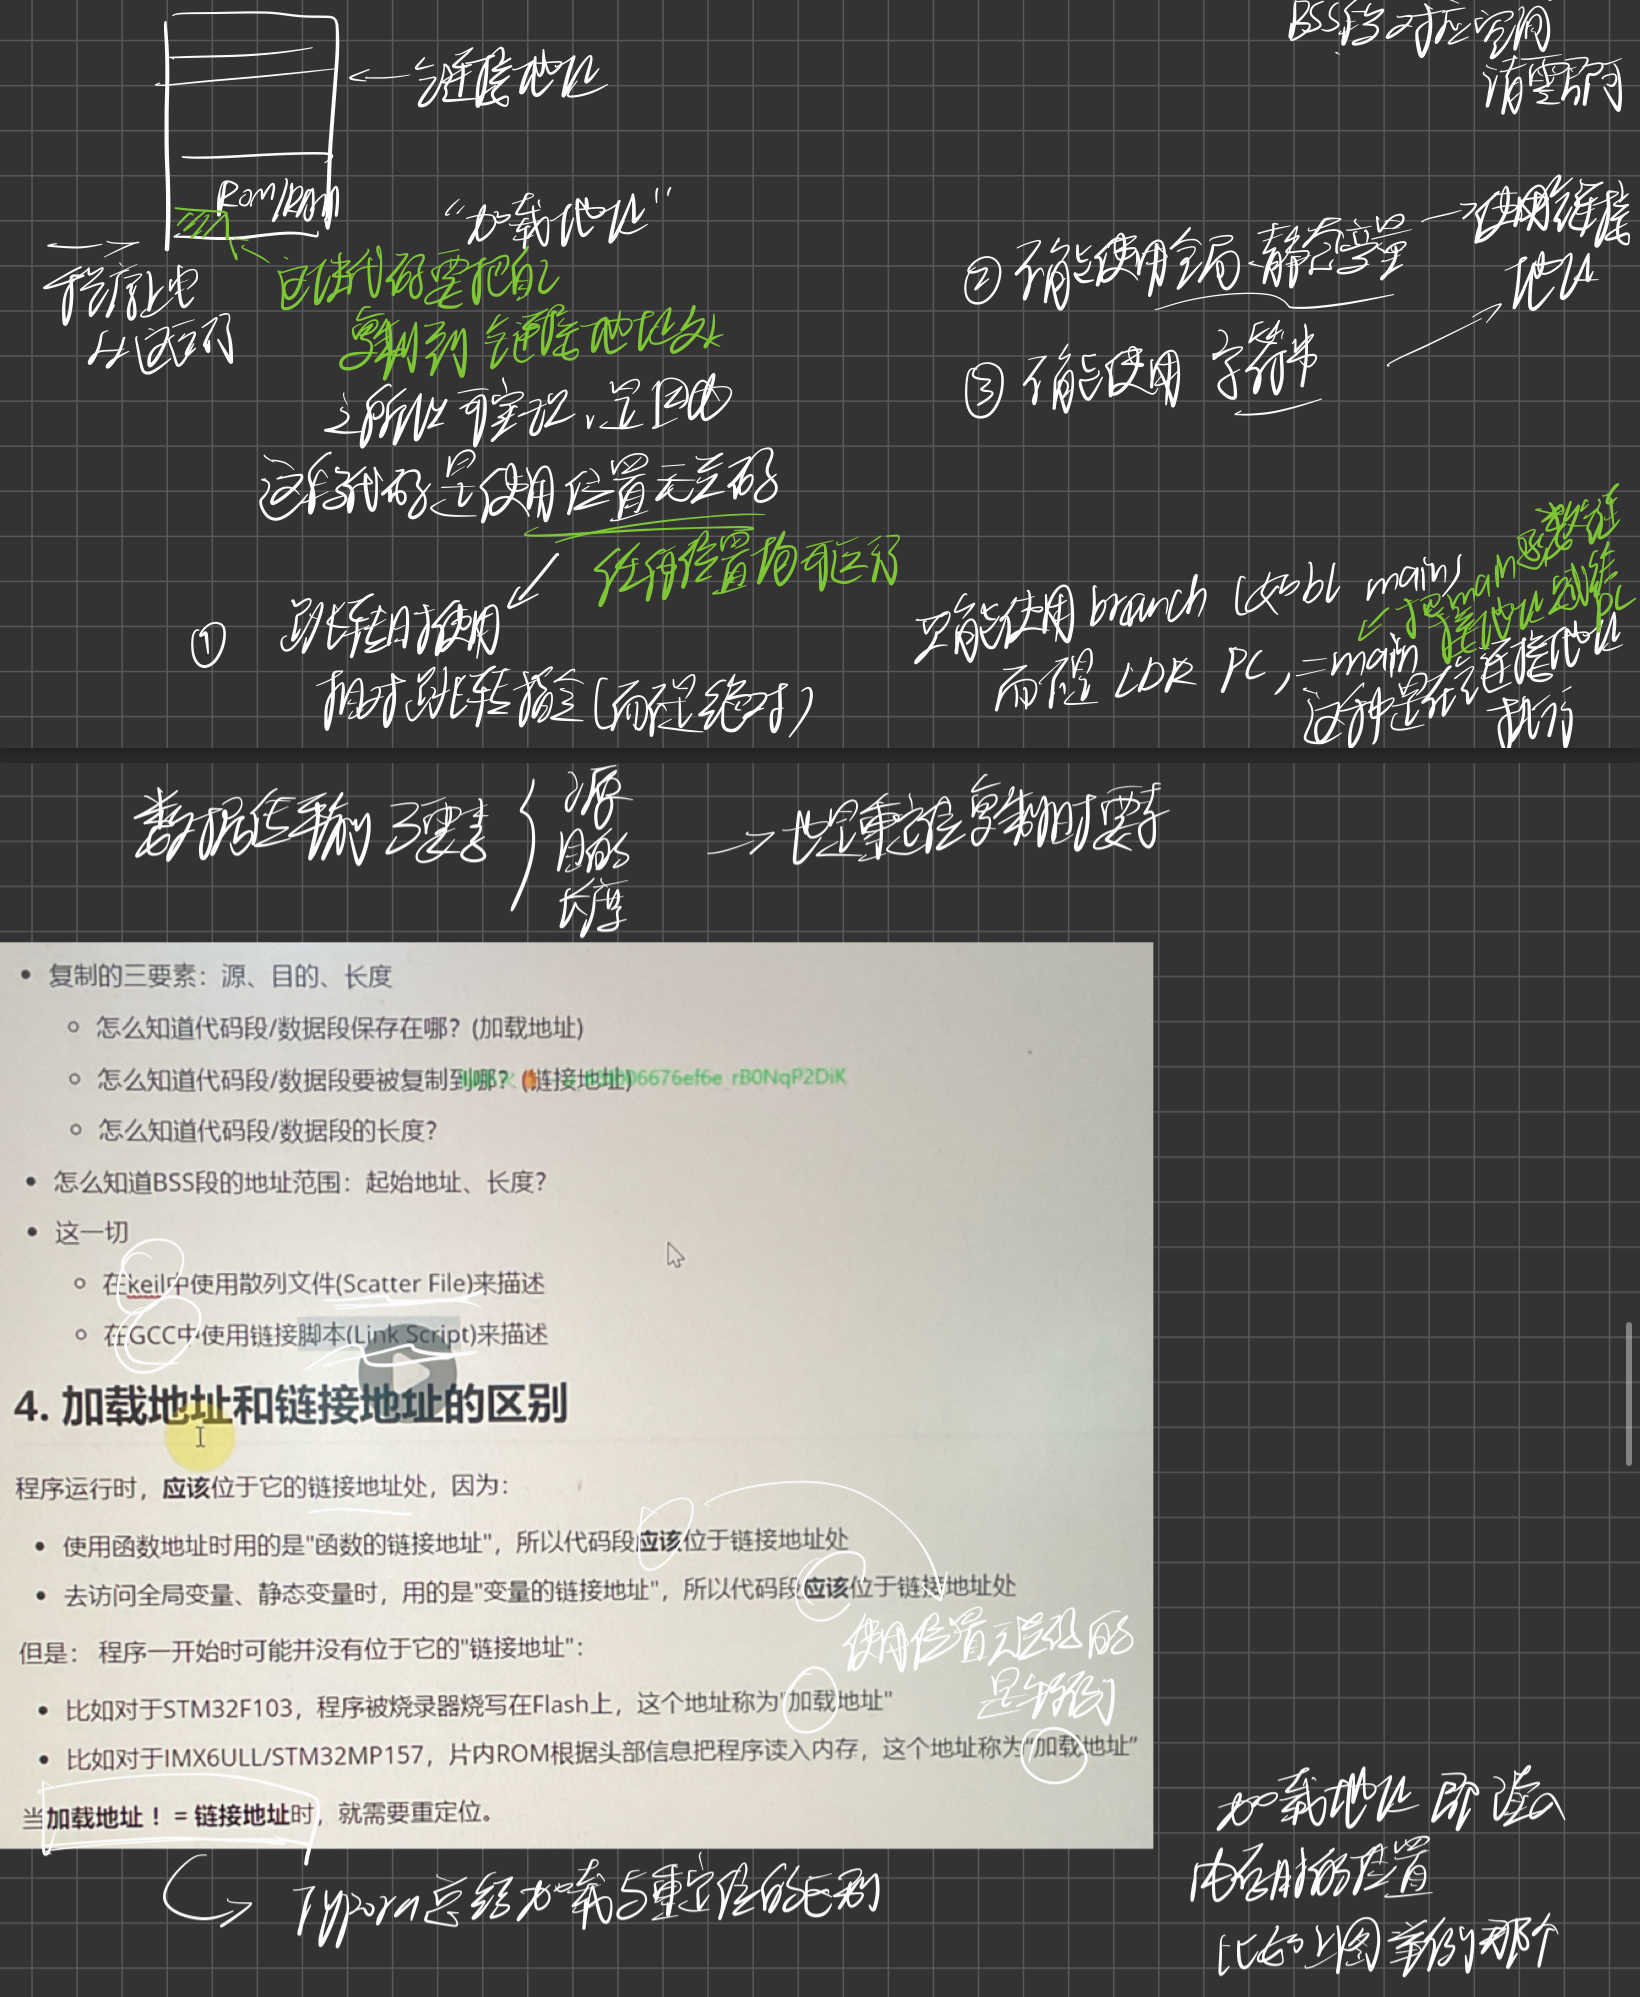 BSS段对应空间
清零即可
← 链接地址
ROM/RAM
"加载地址"
程序上电
从这运行
这块代码要把自己
复制到 链接地址处
之所以可实现,是因为
这段代码是使用位置无关码
任何位置均可运行
① 跳转时使用
相对跳转指令(而非绝对)
② 不能使用全局、静态变量 → 使用链接
地址
③ 不能使用 字符串
只能使用 branch (如bl main)
而非 LDR PC, =main
把main函数链
接地址赋给
PC
这种是在链接地址
执行
数据传输 3要素 { 源
目的
长度
→ 地址重定位复制时要求
• 复制的三要素:源、目的、长度
○ 怎么知道代码段/数据段保存在哪?(加载地址)
○ 怎么知道代码段/数据段要被复制到哪?(链接地址)
6676ef6e_rB0NqP2DiK
○ 怎么知道代码段/数据段的长度?
• 怎么知道BSS段的地址范围:起始地址、长度?
• 这一切
○ 在keil中使用散列文件(Scatter File)来描述
○ 在GCC中使用链接脚本(Link Script)来描述
4. 加载地址和链接地址的区别
程序运行时,应该位于它的链接地址处,因为:
• 使用函数地址时用的是"函数的链接地址",所以代码段应该位于链接地址处
• 去访问全局变量、静态变量时,用的是"变量的链接地址",所以代码段应该位于链接地址处
使用位置无关码的
是特例
但是: 程序一开始时可能并没有位于它的"链接地址":
• 比如对于STM32F103,程序被烧录器烧写在Flash上,这个地址称为"加载地址"
• 比如对于IMX6ULL/STM32MP157,片内ROM根据头部信息把程序读入内存,这个地址称为“加载地址”
当加载地址! = 链接地址时,就需要重定位。
Typora总结加载与重定位的区别
加载地址 即 读入
内存时的位置
比如上图举例那个